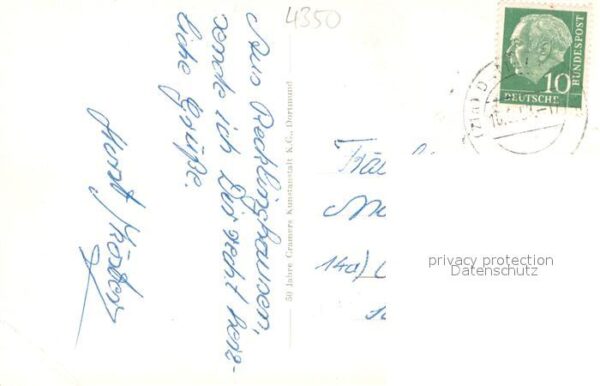 4350
Aus Recklinghausen,
sende ich Dir recht herz-
liche Grüße.
Horst
50 Jahre Cramers Kunstanstalt K.G., Dortmund
10
DEUTSCHE
BUNDESPOST
14a)
privacy protection
Datenschutz